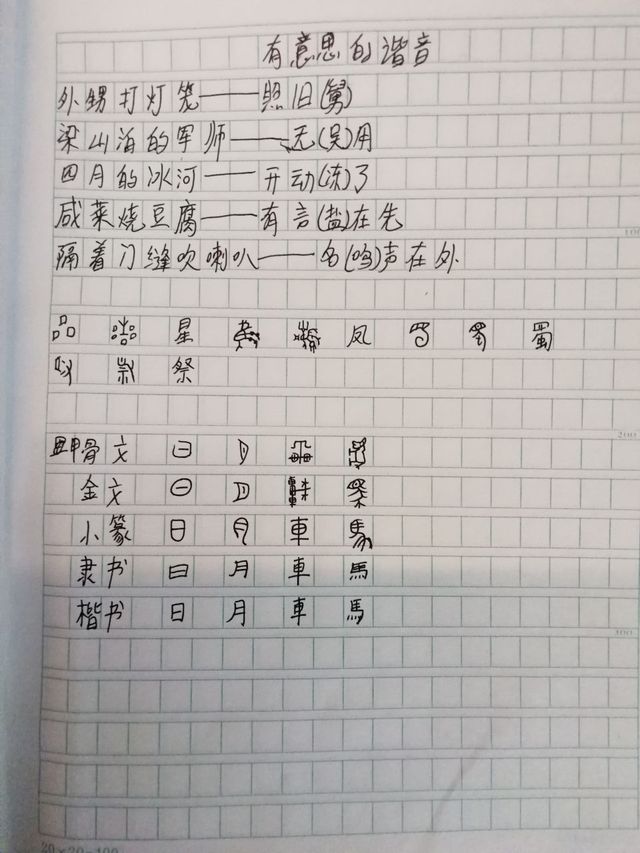 有意思的谐音
外甥打灯笼——照旧(舅)
梁山泊的军师——无(吴)用
四月的冰河——开动(冻)了
咸菜烧豆腐——有言(盐)在先
隔着门缝吹喇叭——名(鸣)声在外
100
星 凤 蜀
祭
200
甲骨文
金文
小篆 日 月 車
隶书 日 月 車 馬
楷书 日 月 車 馬
20×20=400